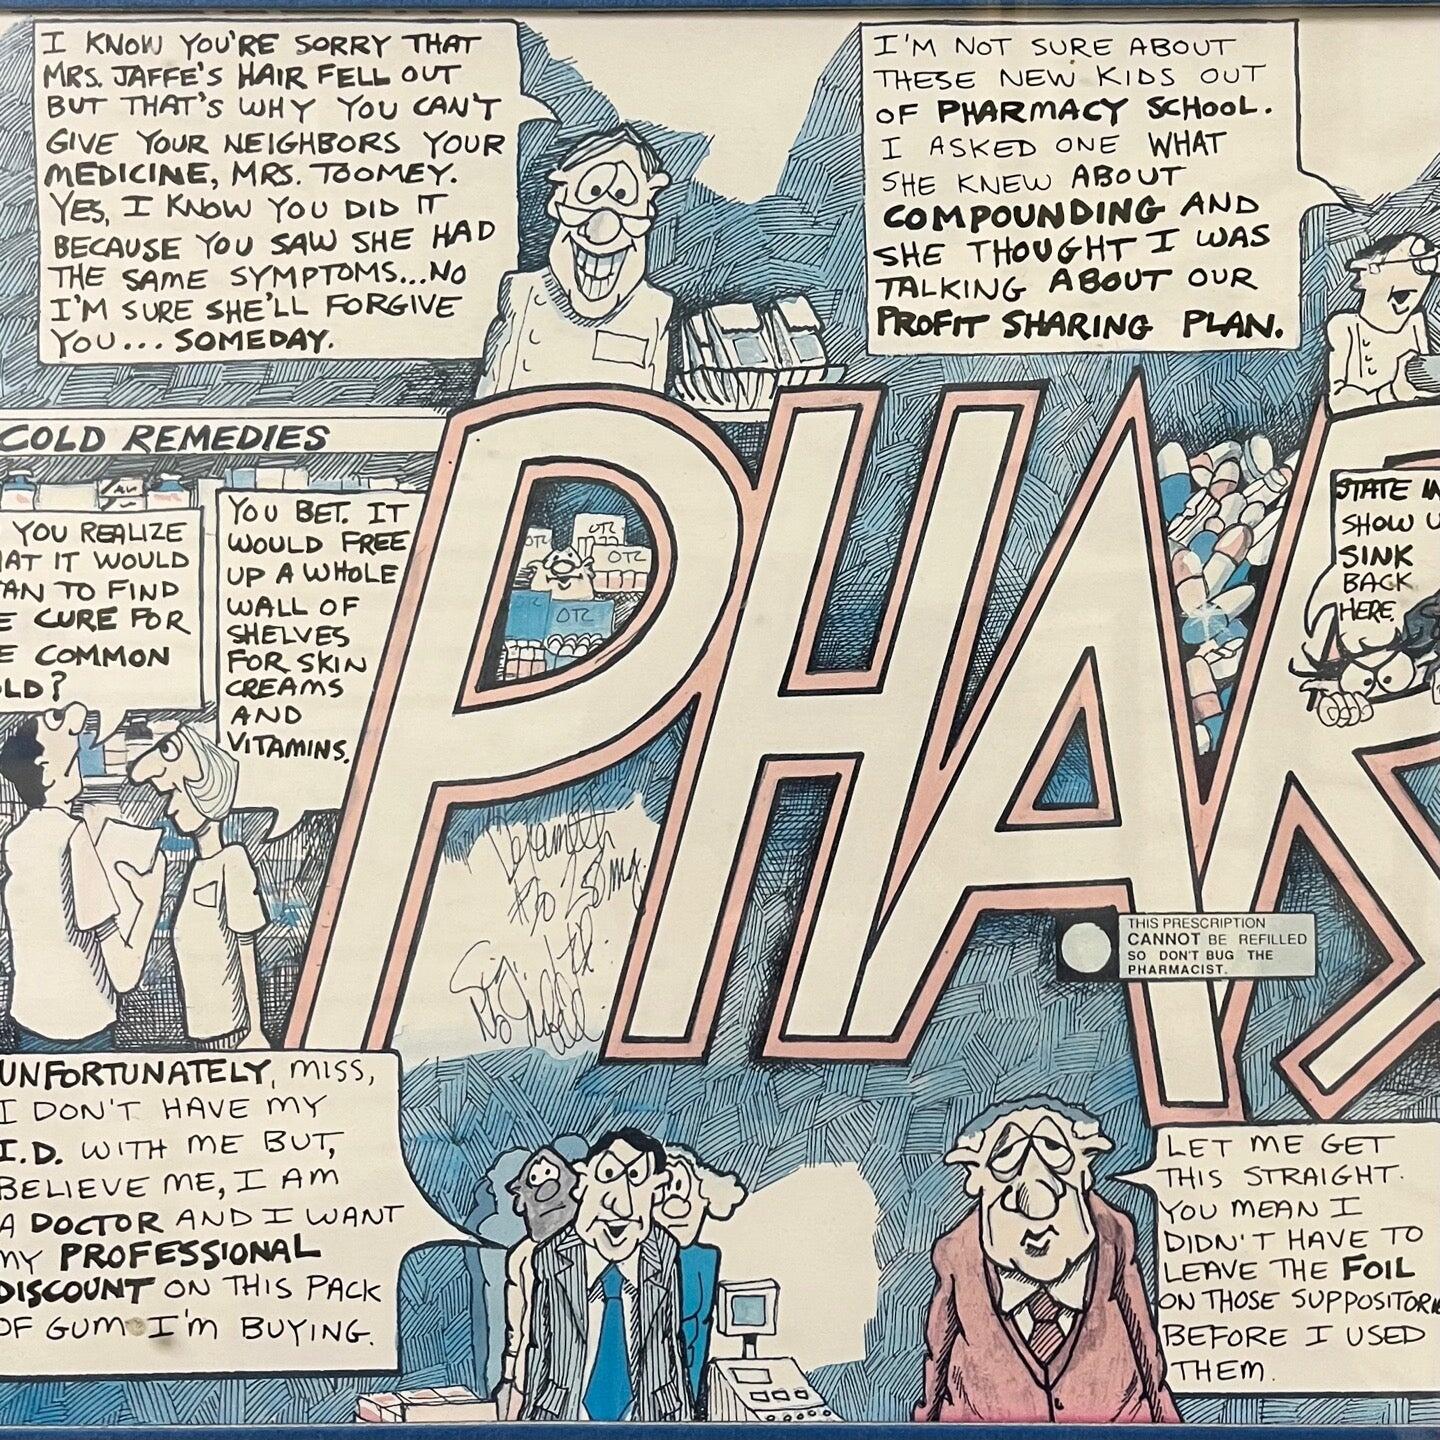 I KNOW YOU'RE SORRY THAT
MRS. JAFFE'S HAIR FELL OUT
BUT THAT'S WHY YOU CAN'T
GIVE YOUR NEIGHBORS YOUR
MEDICINE, MRS. TOOMEY.
YES, I KNOW YOU DID IT
BECAUSE YOU SAW SHE HAD
THE SAME SYMPTOMS...NO
I'M SURE SHE'LL FORGIVE
YOU... SOMEDAY.
I'M NOT SURE ABOUT
THESE NEW KIDS OUT
OF PHARMACY SCHOOL.
I ASKED ONE WHAT
SHE KNEW ABOUT
COMPOUNDING AND
SHE THOUGHT I WAS
TALKING ABOUT OUR
PROFIT SHARING PLAN.
COLD REMEDIES
YOU REALIZE
AT IT WOULD
AN TO FIND
E CURE FOR
E COMMON
OLD?
YOU BET. IT
WOULD FREE
UP A WHOLE
WALL OF
SHELVES
FOR SKIN
CREAMS
AND
VITAMINS.
PHAR
OTC
OTC
OTC
OTC
STATE IN
SHOW U
SINK
BACK
HERE.
#30 250 mg.
THIS PRESCRIPTION
CANNOT BE REFILLED
SO DON'T BUG THE
PHARMACIST.
UNFORTUNATELY, MISS,
I DON'T HAVE MY
I.D. WITH ME BUT,
BELIEVE ME, I AM
A DOCTOR AND I WANT
MY PROFESSIONAL
DISCOUNT ON THIS PACK
OF GUM I'M BUYING.
LET ME GET
THIS STRAIGHT.
YOU MEAN I
DIDN'T HAVE TO
LEAVE THE FOIL
ON THOSE SUPPOSITORIE
BEFORE I USED
THEM.